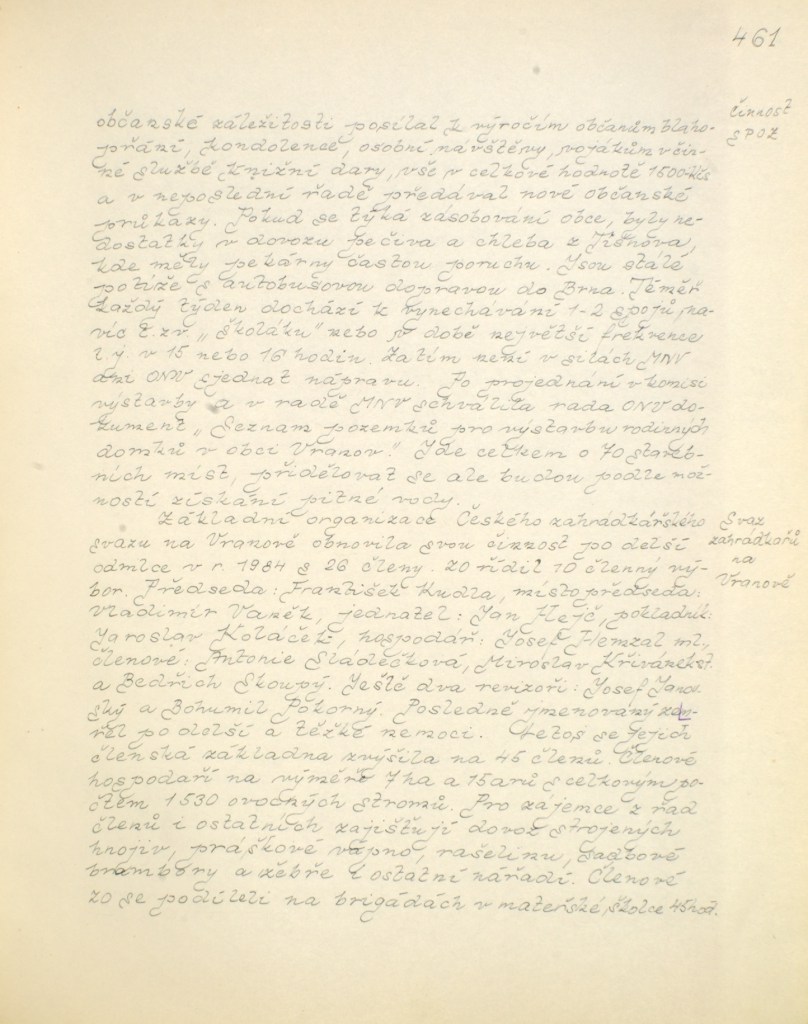 461
činnost
SPOZ
občanské záležitosti posílal k výročím občanům blaho-
přání, kondolence, osobní návštěvy, vojákům v čin-
né službě knižní dary, vše v celkové hodnotě 1600 Kčs
a v neposlední řadě předával nové občanské
průkazy. Pokud se týká zásobování obce, byly ne-
dostatky v dovozu pečiva a chleba z Tišnova,
kde měly pekárny častou poruchu. Jsou stálé
potíže s autobusovou dopravou do Brna. Téměř
každý týden dochází k vynechávání 1-2 spojů, na-
víc t.zv. „školáku" nebo v době největší frekvence
t.j. v 15 nebo 16 hodin. Zatím není v silách MNV
ani ONV sjednat nápravu. Po projednání v komisi
výstavby a v radě MNV schválila rada ONV do-
kument „Seznam pozemků pro výstavbu rodinných
domků v obci Vranov." Jde celkem o 70 staveb-
ních míst, přidělovat se ale budou podle mož-
ností získání pitné vody.
Základní organizace Českého zahrádkářského
svazu na Vranově obnovila svou činnost po delší
odmlce v r. 1984 s 26 členy. ZO řídil 10 členný vý-
bor. Předseda: František Kudla, místopředseda:
Vladimír Vaněk, jednatel: Jan Hejč, pokladník:
Jaroslav Koláček, hospodář: Josef Hemzal ml.,
členové: Antonie Sládečková, Miroslav Křivánek st.
a Bedřich Skoupý. Ještě dva revizoři: Josef Janov-
ský a Bohumil Pokorný. Posledně jmenovaný zem-
řel po delší a těžké nemoci. Letos se jejich
členská základna zvýšila na 45 členů. Členové
hospodaří na výměře 7 ha a 15 arů s celkovým po-
čtem 1530 ovocných stromů. Pro zájemce z řad
členů i ostatních zajišťují dovoz strojených
hnojiv, práškové vápno, rašelinu, sadbové
brambory a žebře i ostatní nářadí. Členové
ZO se podíleli na brigádách v mateřské školce 45 hod.
Svaz
zahrádkářů
na
Vranově